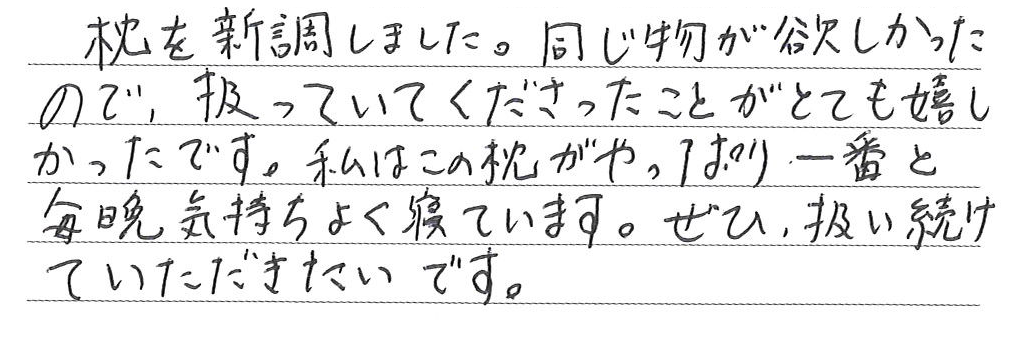 枕を新調しました。同じ物が欲しかった
ので、扱っていてくださったことがとても嬉し
かったです。私はこの枕がやっぱり一番と
毎晩気持ちよく寝ています。ぜひ、扱い続け
ていただきたいです。